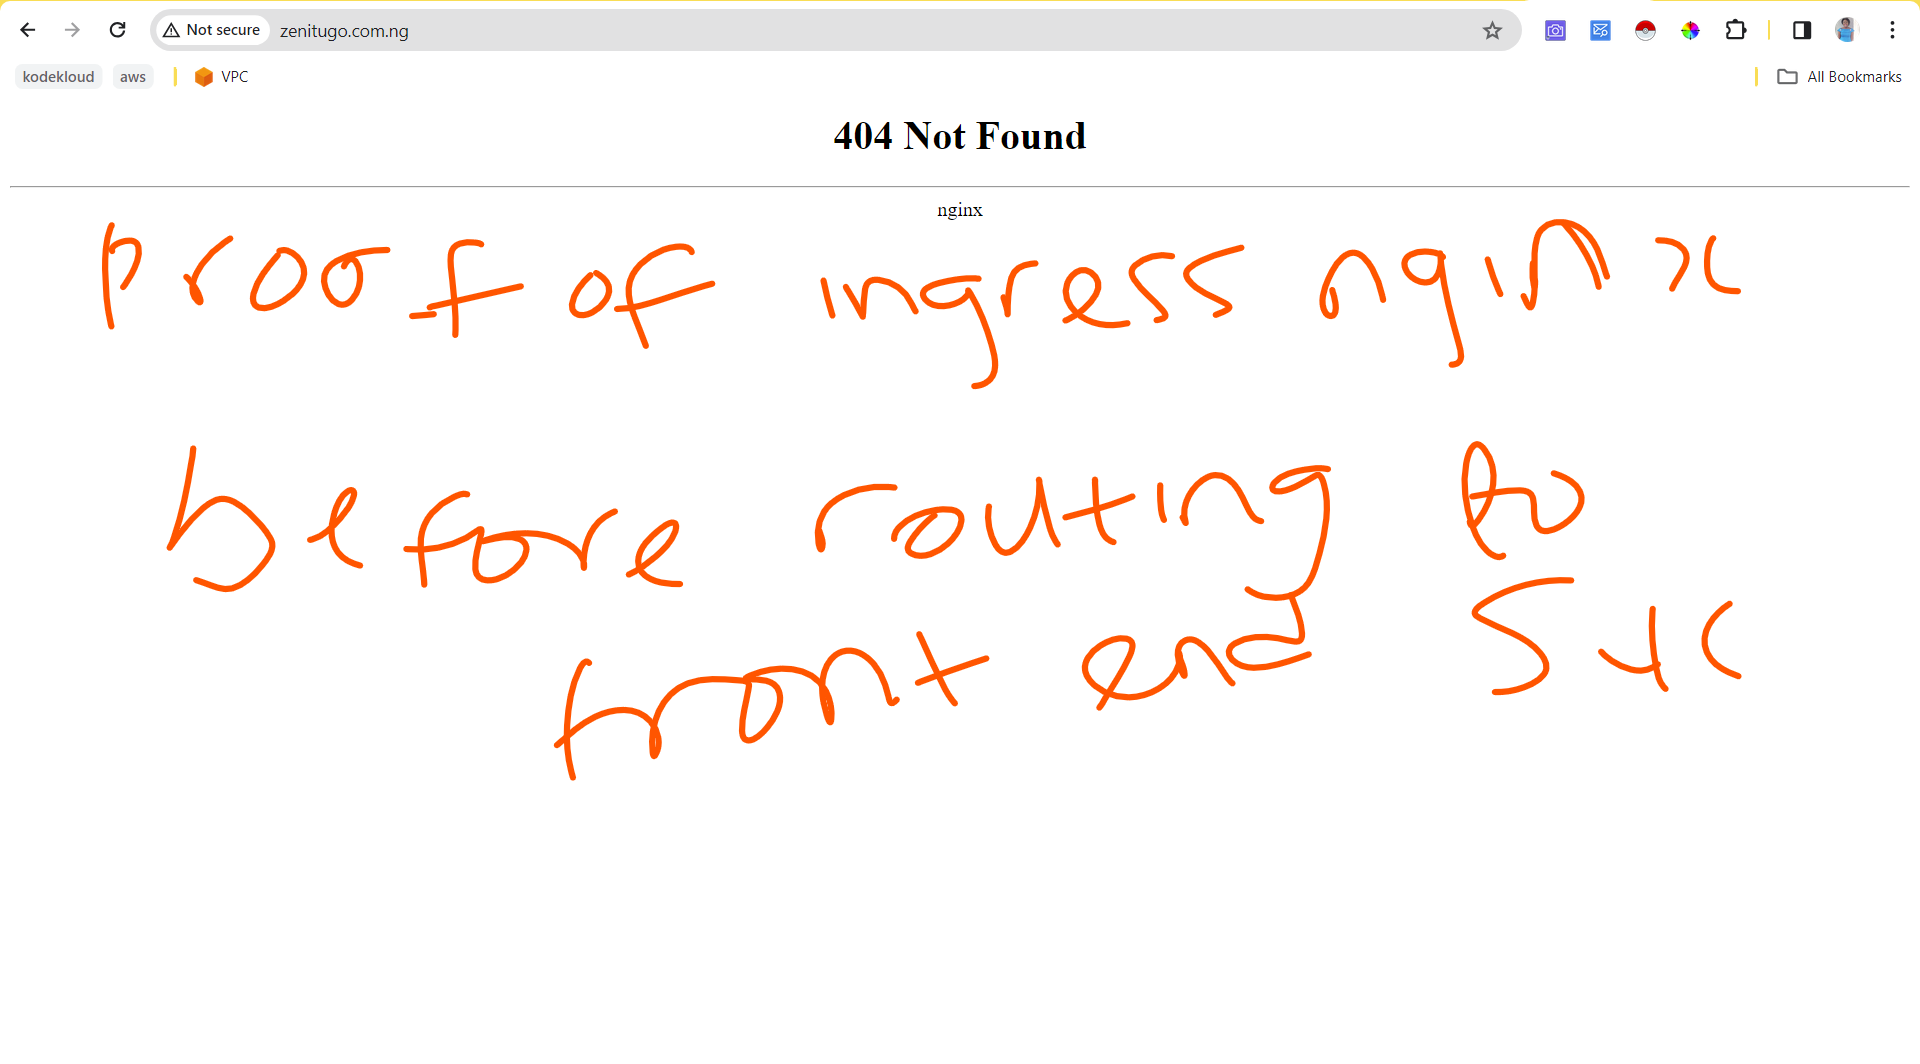 Not secure zenitugo.com.ng
kodekloud aws VPC All Bookmarks
404 Not Found
nginx
Proof of ingress nginx
before routing to
front end svc